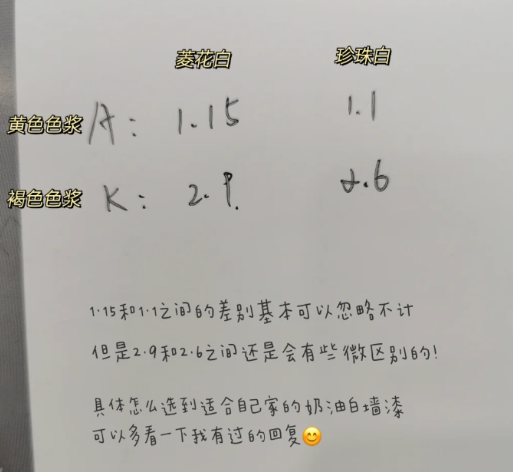 菱花白 珍珠白
黄色色浆 A: 1.15 1.1
褐色色浆 K: 2.9 2.6
1.15和1.1之间的差别基本可以忽略不计
但是2.9和2.6之间还是会有些微区别的!
具体怎么选到适合自己家的奶油白墙漆
可以多看一下我有过的回复😊